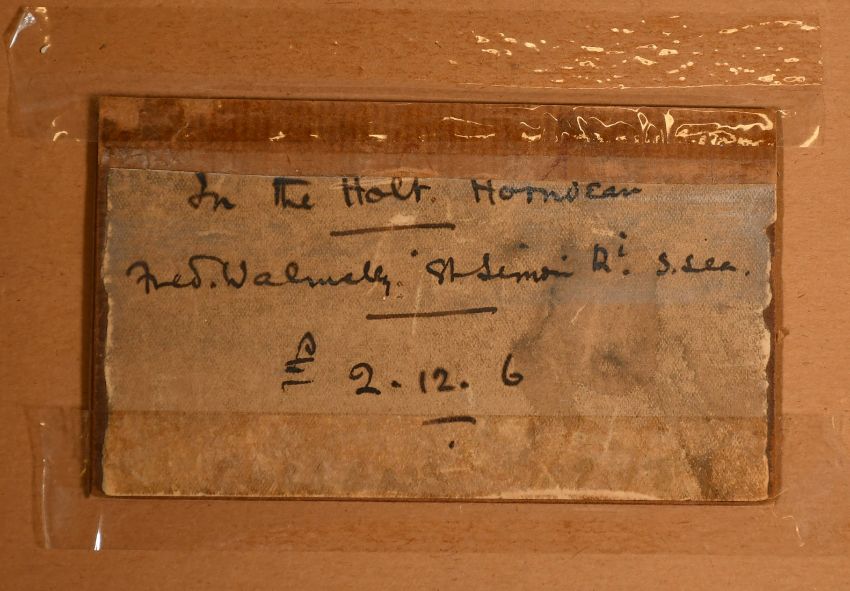 In the Holt. Horndean
Fred. Walmsley. St Simon Rd. S.Sea.
£ 2. 12. 6